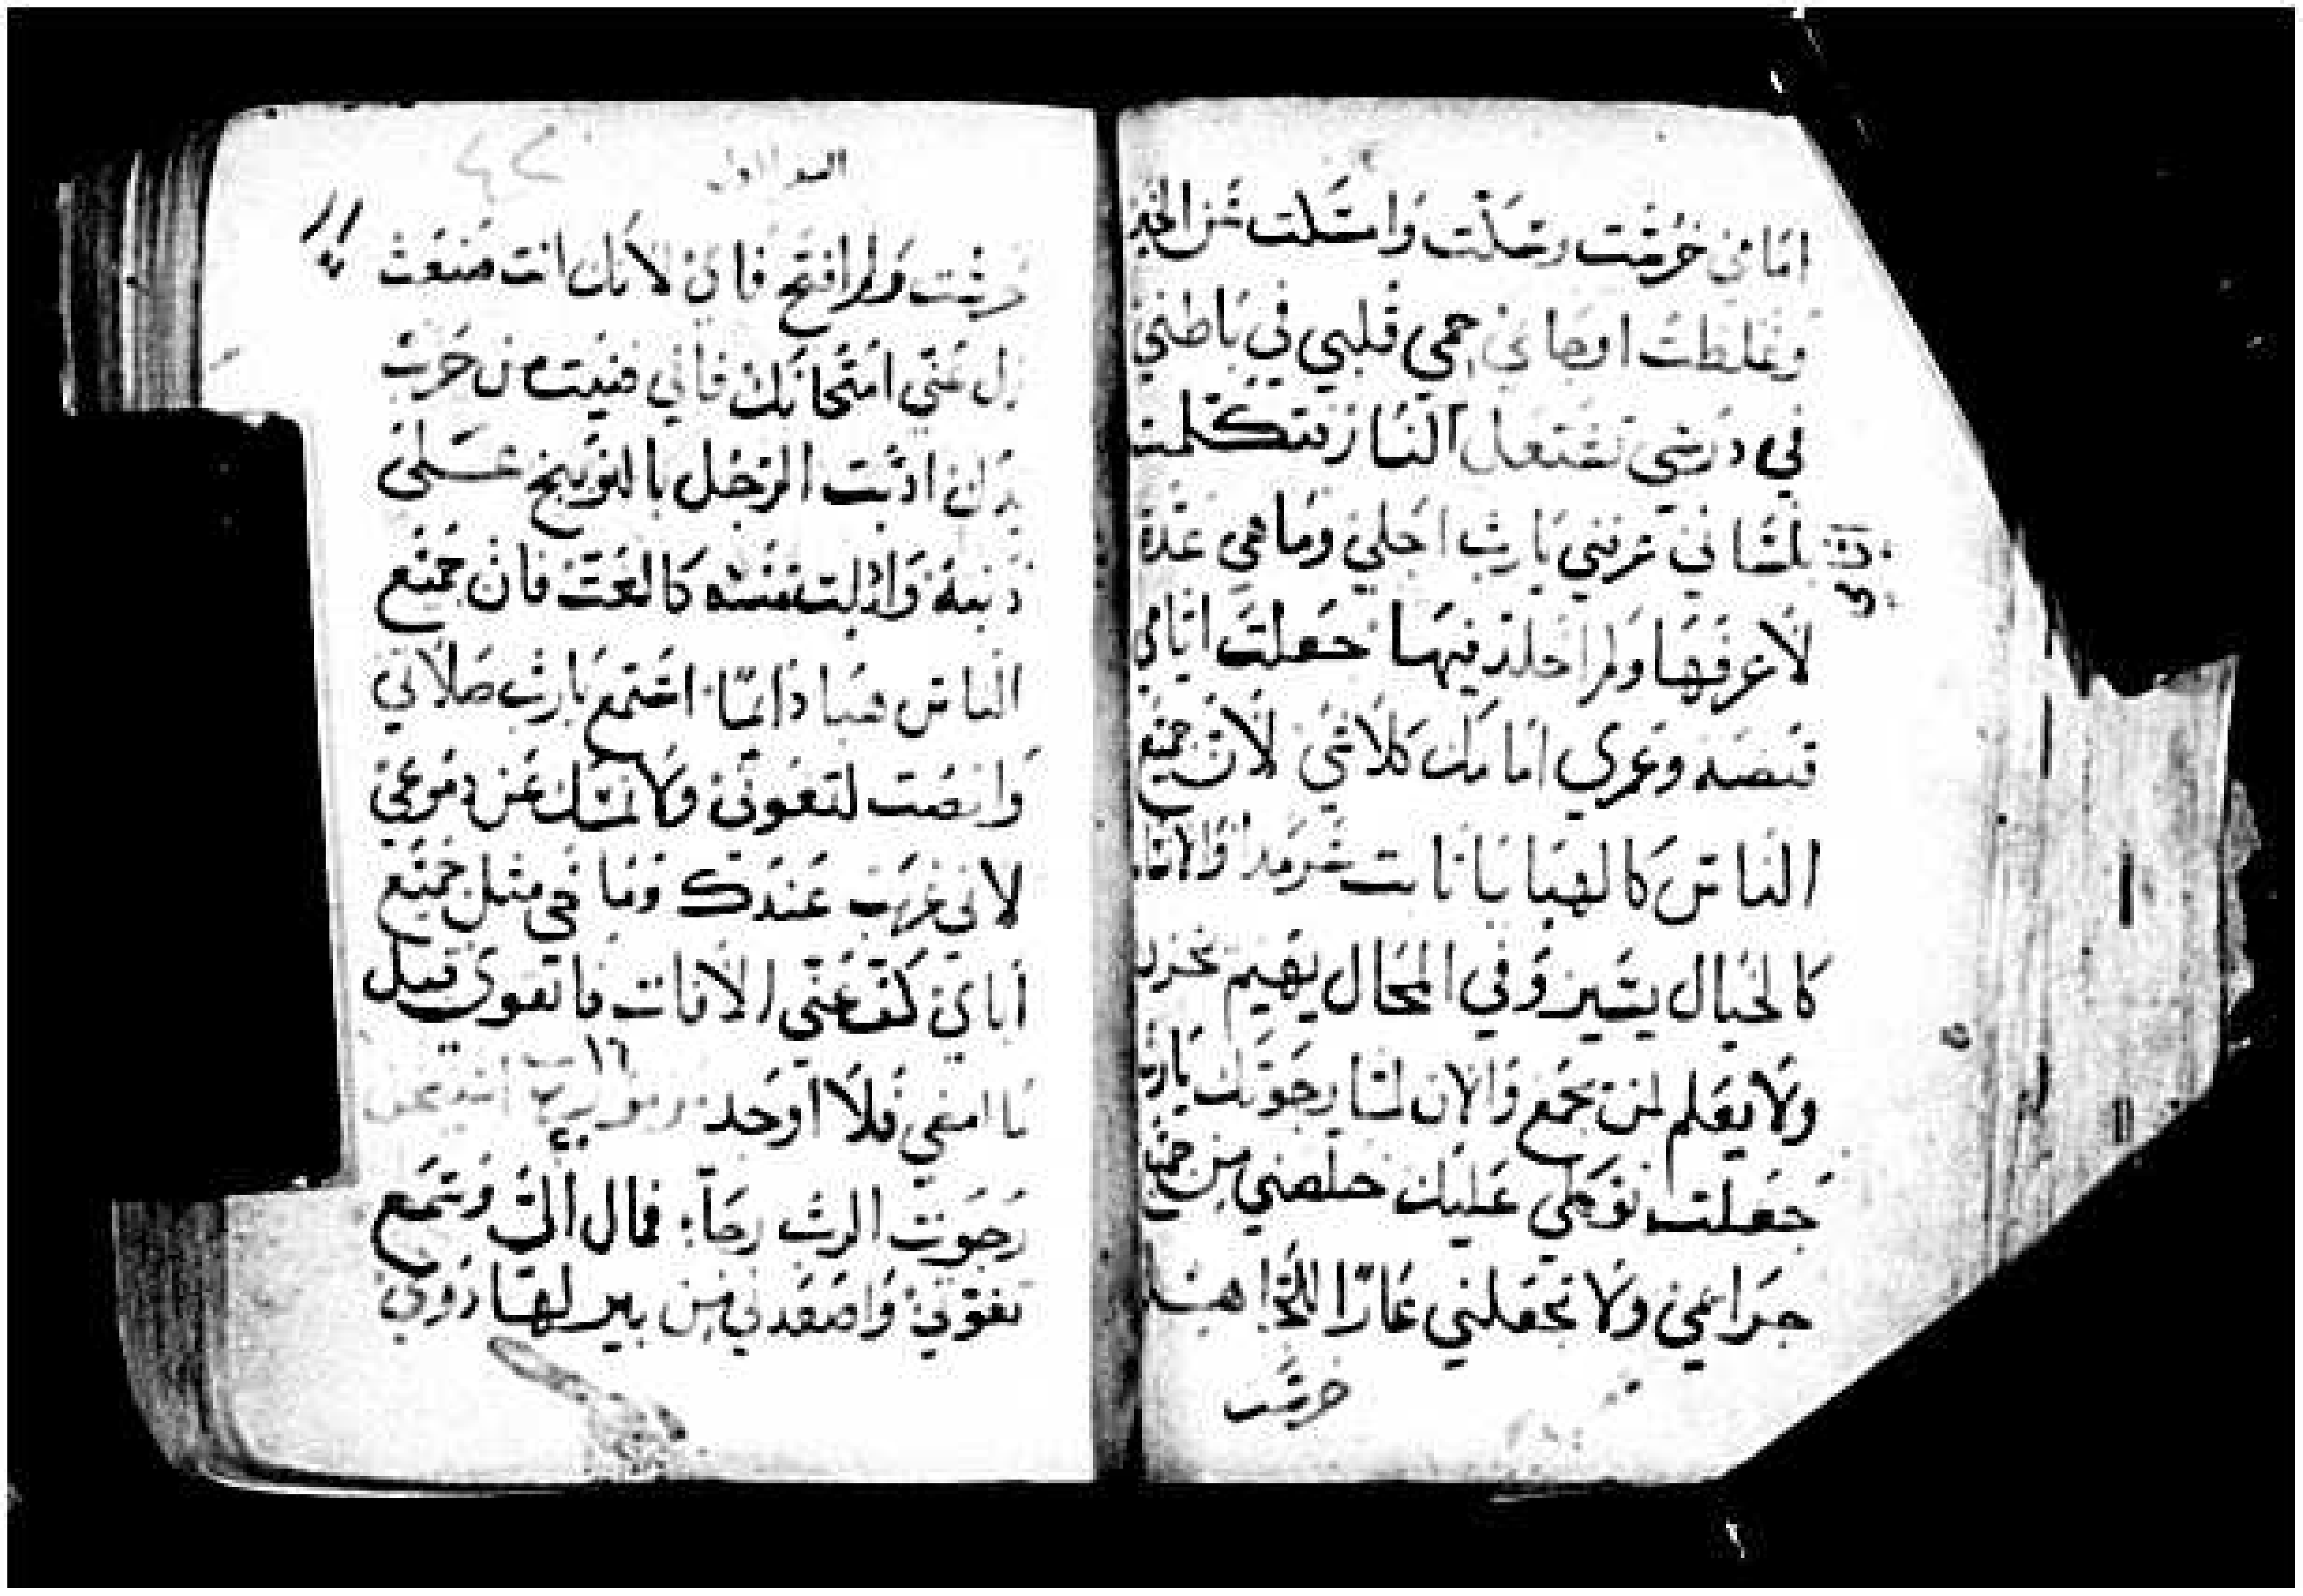 امامي خرست وسكت وامسكت عن الخير
وغلظت اوجاعي حمي قلبي في باطني
في درسي تشتعل النار تتكلمت
بلساني عرفني يارب اجلي وما هي عدة
لاعرفها ولم اخلد فيها جعلت ايامي
قبضه وعمري امامك كلاشي لان جميع
الناس كالهبا بانات سرمدا والانسان
كالخيال يسير وفي المحال يهيم يخزن
ولا يعلم لمن يجمع والان لما رجوتك يارب
جعلت توكلي عليك خلصني من جميع
جرايمي ولا تجعلني عارا للجاهل
خرست
خرست ولم افتح فاي لانك انت صنعت
زل عني امتحانك فاني فنيت من حرب
يدك ادبت الرجل بالتوبيخ على
ذنبه واذبلت نفسه كالعث فان جميع
الناس هبا دايما استمع يارب صلاتي
وانصت لتعوتي ولا تمسك عن دموعي
لاني غريب عندك وما في مثل جميع
اباي كف عني الافات فاتقوى قبل
ما امضي فلا اوجد
رجوت الرب رجا فمال الي وسمع
تعوتي واصعدني من بير لها روي